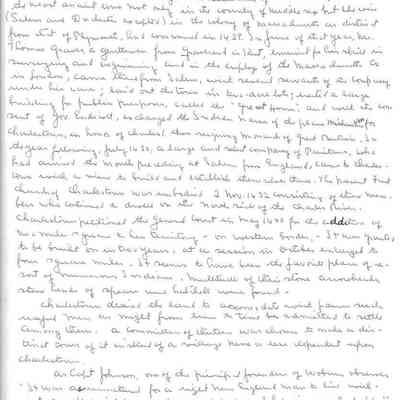 the most ancient town not only in the county of Middlesex but the
(Salem and Dorchester excepted) in the colony of Massachusetts as distinct
from that of Plymouth, had commenced in 1628. In June of that year, Mr.
Thomas Graves a gentleman from Gravesend in Kent, eminent for his skill in
surveying and engineering and in the employ of the Massachusetts Co
in London, came there from Salem, with several servants of the company
under his care; laid out the town in two acre lots; erected a large
building for public purposes, called the "Great House", and with the con-
sent of Gov. Endicott, so changed the Indian name of the place to
Charlestown, in honor of Charles then reigning Monarch of Great Britain. In
the year following, July 1630, a large and company of Puritans, who
had arrived the month preceding at Salem from England, came to Charles-
town with a view to build and establish themselves there. The present First
Church of Charlestown was embodied 2 Nov. 1632 consisting of mem-
bers who obtained a on the north side of the Charles River.
Charlestown petitioned the General Court in May 1640 for the addition of
two miles square to her territory - on western border, - It was granted
to be built on in two years, at a session in October enlarged to
four square miles. It seems to have been the favorite place of re-
sort of numerous Indians. Multitude of their stone arrowheads
stone heads of spears and hatchets were found.
Charlestown desired the land to accommodate with farms such
useful men as might from time to time be admitted to settle
among them. A committee of thirteen was chosen to make a dis-
tinct town of it instead of a village more or less dependent upon
Charlestown.
As Capt Johnson, one of the principal founders of Woburn observes
"It was as unnatural for a right New England man to live with-